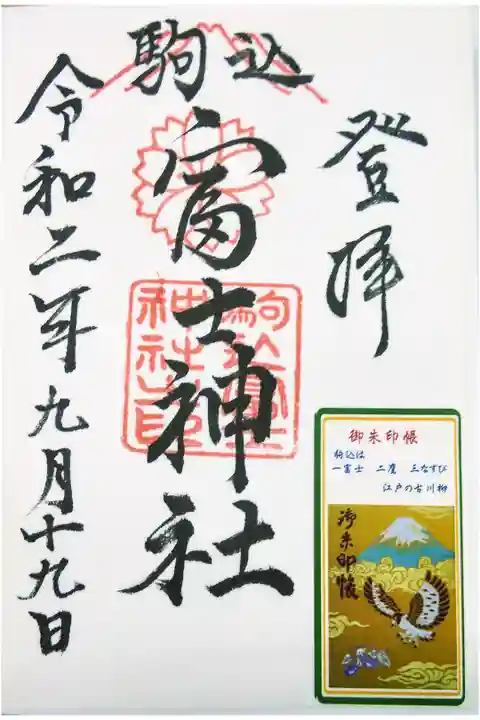 登拝
駒込
富士神社
令和二年九月十九日
駒込富士
神社之印
御朱印帳
駒込は
一富士 二鷹 三なすび
江戸の古川柳
御朱印帳